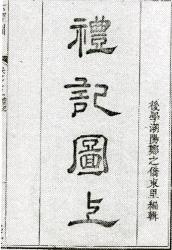 禮記圖上
後學潮陽鄭之僑東里編輯